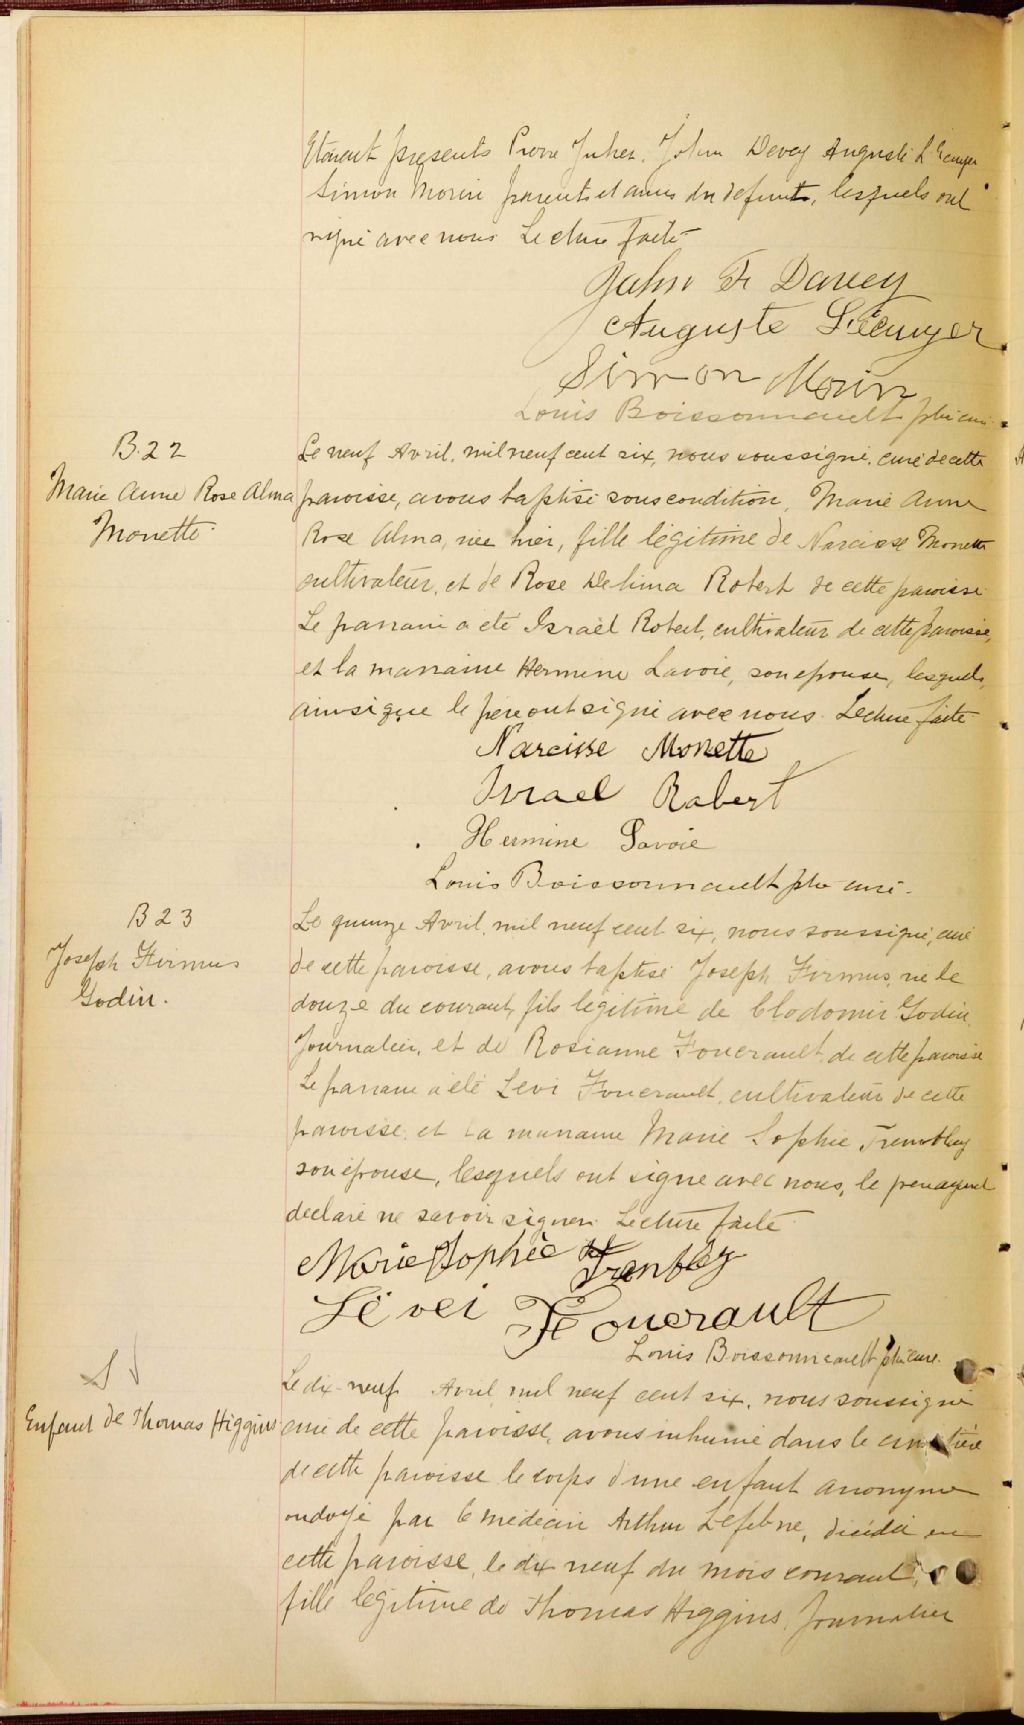 Etaient presents Pierre John Davey Auguste L'Ecuyer
Simon Morin parents et amis du defunt, lesquels ont
signé avec nous Lecture faite
John F. Davey
Auguste L'écuyer
Simon Morin
Louis Boissonnault ptre curé
B.22
Marie Anne Rose Alma
Monette
Le neuf Avril, mil neuf cent six, nous soussigné, curé de cette
paroisse, avons baptisé sous condition, Marie Anne
Rose Alma, née hier, fille légitime de Narcisse Monette
cultivateur, et de Rose Delima Robert de cette paroisse
Le parrain a été Israël Robert, cultivateur de cette paroisse,
et la marraine Hermine Lavoie, son epouse, lesquels,
ainsi que le père ont signé avec nous. Lecture faite
Narcisse Monette
Israel Robert
Hermine Savoie
Louis Boissonnault ptre curé.
B 23
Joseph Firmus
Godin.
Le quinze Avril, mil neuf cent six, nous soussigné, curé
de cette paroisse, avons baptisé Joseph Firmus, né le
douze du courant, fils légitime de Clodomir Godin,
Journalier, et de Rosianne Foucrault, de cette paroisse
Le parrain a été Levi Foucrault, cultivateur de cette
paroisse, et la marraine Marie Sophie Tremblay
son épouse, lesquels ont signé avec nous, le père ayant
declaré ne savoir signer. Lecture faite
Marie Sophie Trenbley
Lëvei Foucrault
Louis Boissonneault ptre curé.
Enfant de Thomas Higgins
Le dix-neuf Avril, mil neuf cent six, nous soussigné
curé de cette paroisse, avons inhumé dans le cimetière
de cette paroisse le corps d'une enfant anonyme
ondoyé par le médecin Arthur Lefebvre, décédé en
cette paroisse, le dix neuf du mois courant,
fille légitime de Thomas Higgins, Journalier